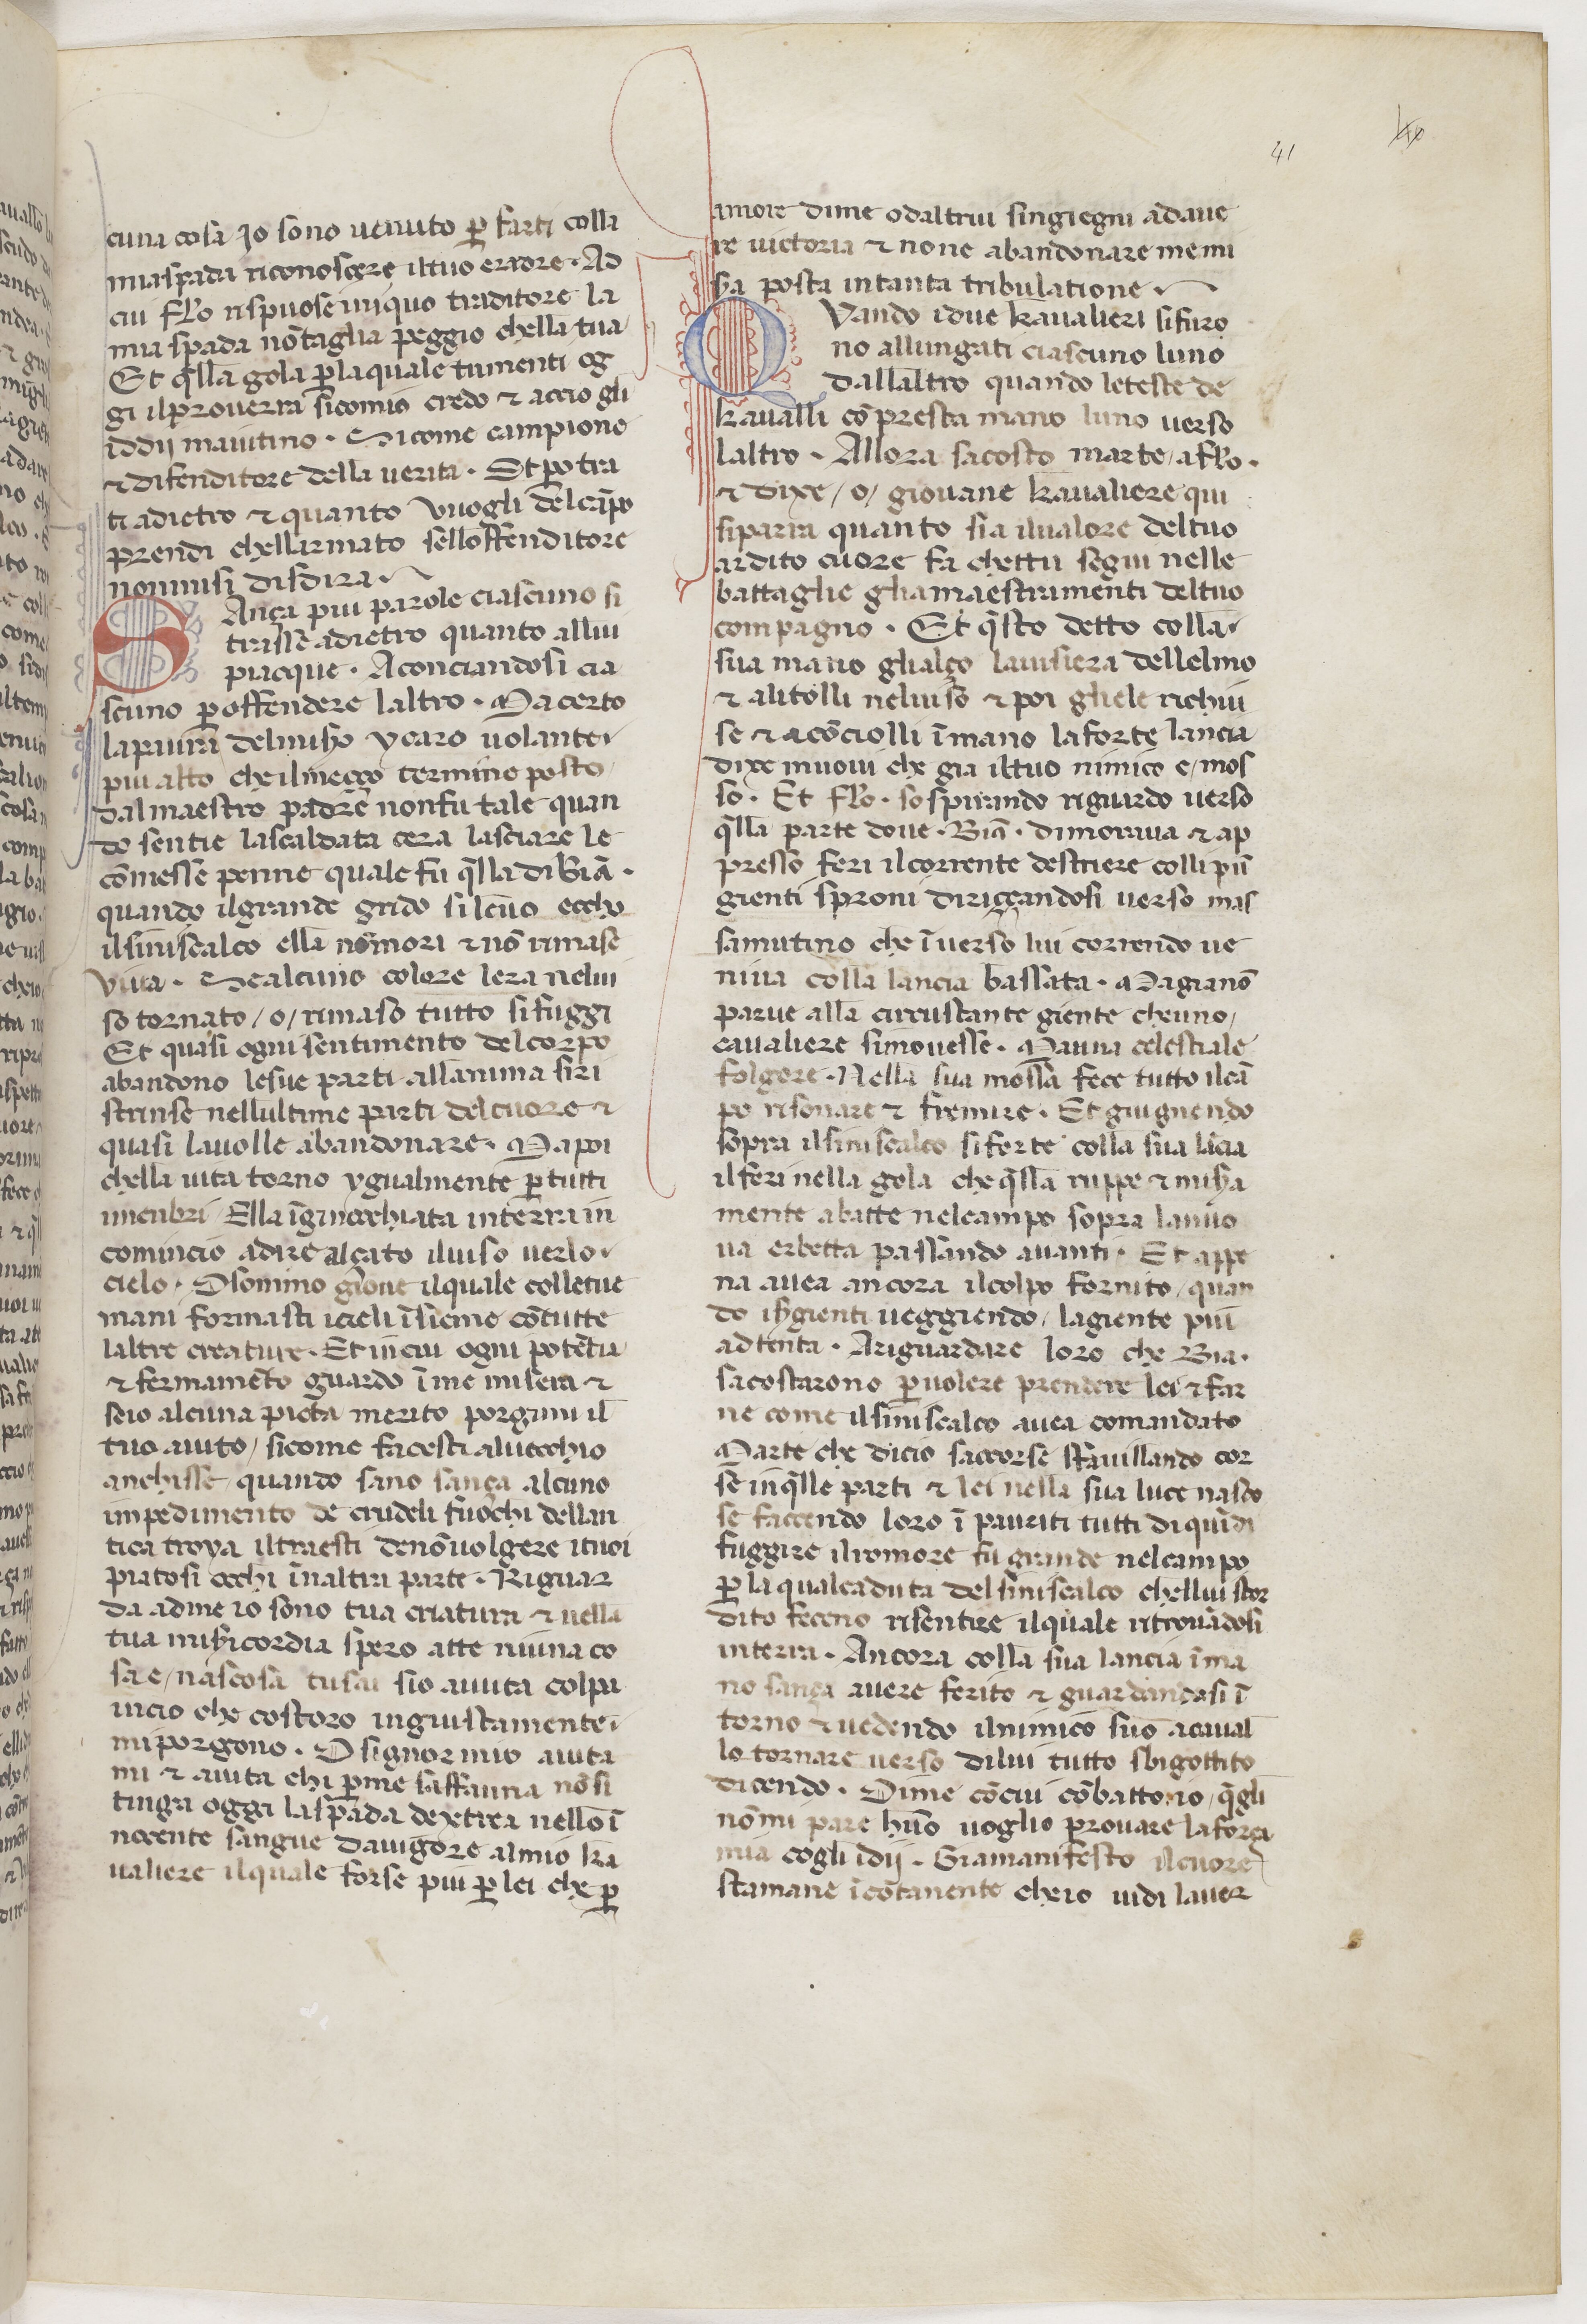 41
cuna cosa Jo sono uenuto p̲ farti colla
mia spada riconoscere iltuo errore · Ad
cui Flo rispuose iniquo traditore la
mia spada nō taglia peggio chella tua
Et q̄lla gola p̲ laquale tu menti og
gi il prouerra sicomio credo ⁊ accio gli
iddij maiutino · Sicome campione
⁊ difenditore della uerita · Et p̲o tra
ti adietro ⁊ quanto vuogli del cāpo
prendi chellarmato sello offenditore
nonmisi disdira ·
SAnça piu parole ciascuno si
trasse adietro quanto allui
piacque · Aconciandosi cia
scuno p̲ offendere laltro · Ma certo
la paura del misero ycaro uolante
piu alto che il meçço termine posto
dal maestro padre non fu tale quan
do sentie lascaldata cera lasciare le
cōmesse penne quale fu q̄lla di Biā ·
quando il grande grido si leuo eccho
il siniscalco ella nō mori ⁊ nō rimase
viua · Se alcuno colore lera nelui
so tornato / o / rimaso tutto si fuggi
Et quasi ogni sentimento del corpo
abandono lesue parti allanima si ri
strinse nellultime parti del cuore ⁊
quasi lauolle abandonare · Ma poi
chella uita torno ygualmente p̲ tutti
imenbri Ella īginocchiata interra in
comincio adire alçato iluiso uerlo
cielo · O sommo gioue ilquale colletue
mani formasti icieli īsieme cō tutte
laltre creature · Et in cui ogni potētia
⁊ fermamēto guardo ī me misera ⁊
seio alcuna pieta merito porgimi il
tuo aiuto / sicome facesti aluecchio
anchisse quando sano sança alcuno
impedimento de crudeli fuochi dellan
tica troya iltraesti de nō uolgere ituoi
piatosi occhi īnaltra parte · Riguar
da adme io sono tua criatura ⁊ nella
tua misericordia spero atte niuna co
sa e / nascosa tu sai sio auuta colpa
incio che costoro ingiustamente
mi porgono · O signor mio aiuta
mi ⁊ aiuta chi p̲ me saffanna nō si
tinga oggi la spada dextra nello ī
nocente sangue da uigore almio ka
ualiere ilquale forse piu p̲ lei che p̲
amore dime odaltrui singiegni adaue
re uictoria ⁊ none abandonare me mi
sera posta intanta tribulatione ·
QVando idue kaualieri si furo
no allungati ciascuno luno
dallaltro quando leteste de
kaualli cō presta mano luno uerso
laltro · Allora sacosto marte / a flo ·
⁊ dixe / o / giouane kaualiere qui
si parra quanto sia iluualore deltuo
ardito cuore fa chettu segui nelle
battaglie gliamaestramenti deltuo
compagno · Et q̄sto detto colla
sua mano glialço lauisiera dellelmo
⁊ alitolli neluiso ⁊ poi ghele richiu
se ⁊ acōciolli ī mano laforte lancia
dixe muoui che gia iltuo nimico e / mos
so · Et flo · sospirando riguardo uerso
q̄lla parte doue · Biā · dimoraua ⁊ ap
presso feri il corrente destriere colli pū
gienti sproni diriççandosi uerso mas
samutino che īuerso lui correndo ue
niua colla lancia bassata · Ma gia nō
parue alla circustante giente che uno
caualiere si mouesse · Ma una celestiale
folgore · Nella sua mossa fece tutto ilcā
po risonare ⁊ fremire · Et giugnendo
sopra ilsiniscalco si forte colla sua lācia
il feri nella gola che q̄lla ruppe ⁊ misera
mente abatte nelcampo sopra lanuo
ua erbetta passando auanti · Et appe
na auea ancora il colpo fornito / quan
do isergienti ueggiendo / lagiente piu
adtenta · Ariguardare loro che Bia ·
sacostarono p̲ uolere prendere lei ⁊ far
ne come ilsiniscalco auea comandato
Marte che dicio saccorse sfauillando cor
se in q̄lle parti ⁊ lei nella sua luce nasco
se faccendo loro ī pauriti tutti di quīdi
fuggire ilromore fu grande nelcampo
p̲ la qual caduta del siniscalco chellui stor
dito feceno risentire ilquale ritrouādosi
interra · Ancora colla sua lancia ī ma
no sança auere ferito ⁊ guardandosi ī
torno ⁊ uedendo ilnimico suo acaual
lo tornare uerso dilui tutto sbigottito
dicendo · Dime cō cui cōbattono / q̄gli
nō mi pare huō uoglio prouare laforça
mia cogli idij · Gia manifesto ilcuore
stamane īcōtanente che io uidi lauer